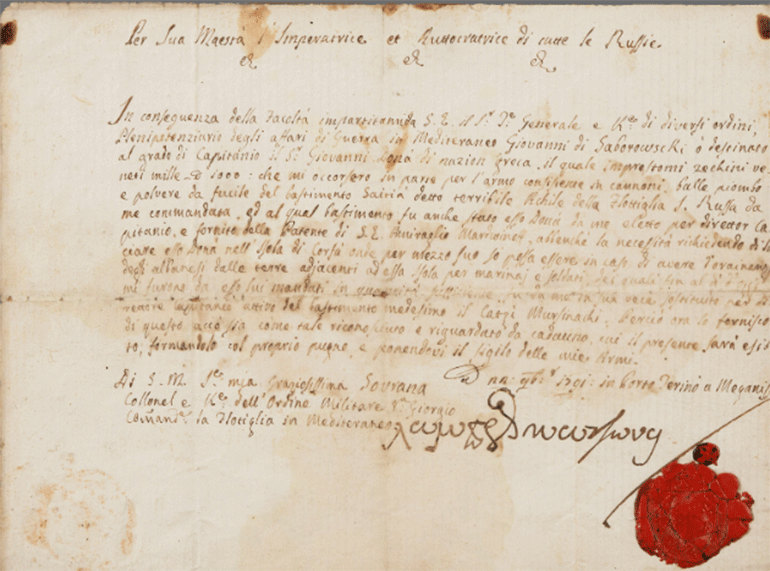 Per Sua Maestà l'Imperatrice et Auttocratrice di tutte le Russie.
In conseguenza della facoltà impartita S.E. il Sr. Generale e Kr. di diversi ordini,
Plenipotenziario degli affari di Guerra in Mediteraneo Giovanni di Saborowschi ò destinato
al grado di Capitanio il Sr. Giovanni Donà di nazion Greca, il quale imprestomi zechini ve-
neti mille 1000: che mi occorsero in parte per l'armo consistente in cannoni, balle piombo
e polvere da fucile del bastimento detto terribile Achile della flottiglia S. Russa da
me commandata, ed al qual bastimento fu anche stato esso Donà da me eletto per diretor Ca-
pitanio, e fornito della Patente di S.E. Amiraglio, allenchè la necessità richiedendo di
esso Donà nell'Isola di Corfù onde per mezzo suo si possa essere in caso di avere
degli albanesi delle terre adjacenti ad essa Isola per marinaj e soldati, dei quali
mi furono da esso lui mandati in in sua vece sostituito per
attivo del bastimento medesimo il Catzi Mursinachi. Perciò ora lo fornisco
di questo acciò sia come tale riconosciuto e riguardato da cadauno, cui il presente sarà esibi-
to, formandolo col proprio pugno, e ponendovi il sigilo delle mie Armi.
Di S.M. mia Graziosissima Sovrana
Collonel e Kr. dell'Ordine Militare Sn. Giorgio
la flotiglia in Mediteraneo
in Porto a Meganisi